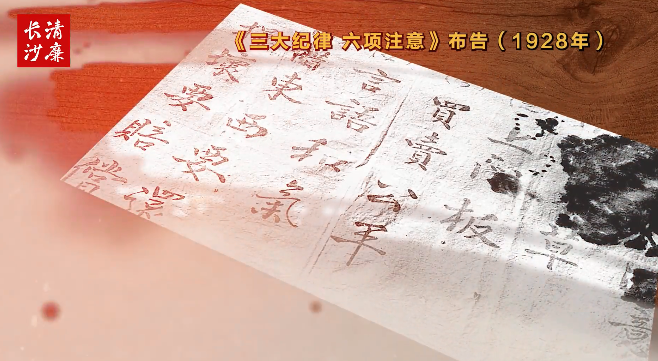 清廉
长沙
《三大纪律 六项注意》布告（1928年）
上門板
草
買賣公平
言語和氣
借東西要還
壞要賠償